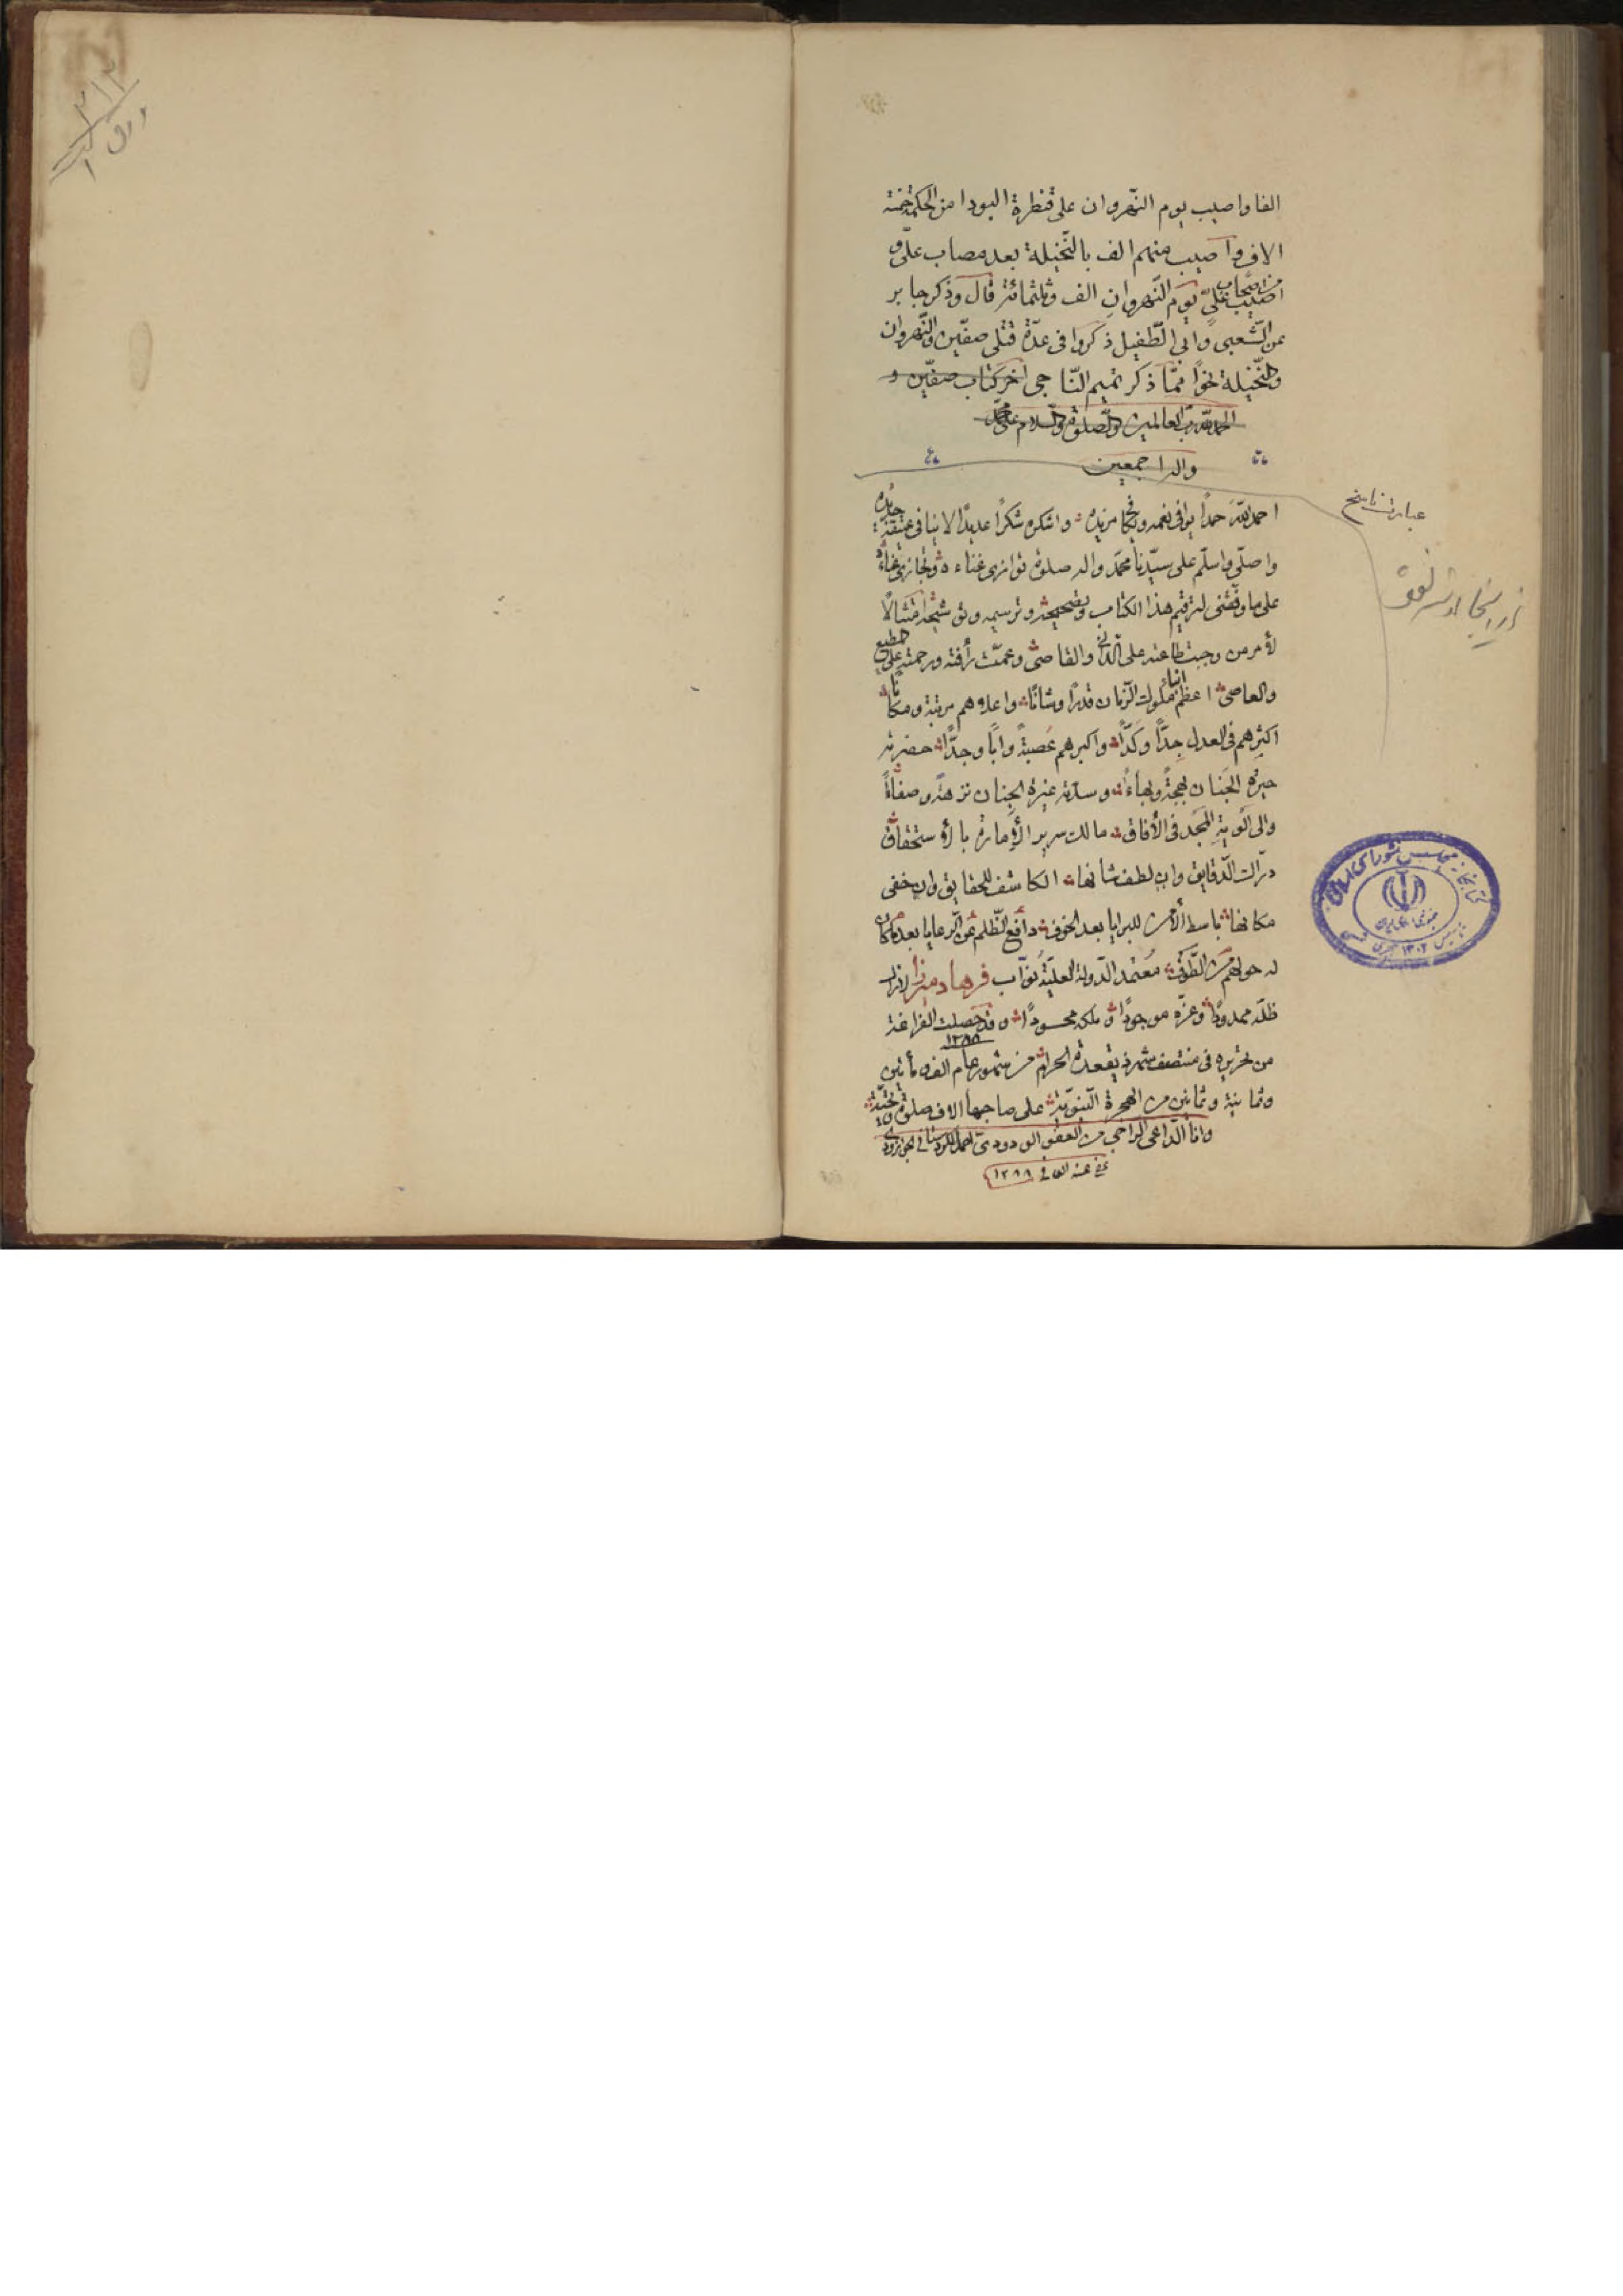 الفا واصيب يوم النّهروان على قنطرة البودا من المحكمة خمسة
الاف واصيب منهم الف بالنّخيلة بعد مصاب علىّ و
اصيب من اصحاب علىّ يوم النّهروان الف وثلثمائة قال وذكر جابر
عن الشّعبى وابى الطّفيل ذكروا فى عدّة قتلى صفّين والنّهروان
والنّخيلة نحوًا ممّا ذكر تميم النّاجى اخر كتاب صفّين و
الحمد للّه ربّ العالمين والصّلوة والسّلام على محمّد
واله اجمعين
عبارت ناسخ
احمد اللّه حمدًا يوافى نعمه ويكافى مزيده واشكره شكرًا عديدًا لا ينافى عتيقه جديده
واصلّى واسلّم على سيّدنا محمّد واله صلوة توازى غناءه وتجازى غناءه
على ما وفّقنى لترقيم هذا الكتاب وتصحيحه وترسيمه وتوشيحه امتثالًا
لأمر من وجبت طاعته على الدّانى والقاصى وعمّت رأفته ورحمته على المطيع
والعاصى اعظم ابناء ملوك الزمان قدرًا وشانًا واعلاهم مرتبة ومكانًا
اكثرهم فى العدل جِدًّا وكَدًّا واكبرهم عُصبةً وابًا وجدًّا حضرته
حيرة الجَنان بهجةً وبهاءً وسدّته غيرة الجِنان نزهةً وصفاءً
والى ألوية المجد فى الأفاق مالك سرير الأمارة بالأستحقاق
درّاك الدّقايق وان لطف شانها الكاشف للحقايق وان خفى
مكانها باسط الأمن للبرايا بعد الخوف دافع الظّلم عن الرعايا بعد ما كان
له حولهم من الطّوف مُعتمد الدّولة العليّة نوّاب فرهاد ميرزا لازال
ظلّه ممدودًا وعزّه موجودًا وملكه محسودًا وقد حصلت الفراغة
١٢٨٨
من تحريره فى منتصف شهر ذيقعدة الحرام من شهور عام الف ومأتين
وثمانية وثمانين من الهجرة النّبويّة على صاحبها الاف صلوة وتحيّة
وانا الدّاعى الراجى من العفوّ الودود احمد الكردستانى
عفى عنه ١٢٨٨
كتابخانه مجلس شوراى اسلامى
جمهورى اسلامى ايران
تاسيس ١٣٠٢ هجرى شمسى
ورق